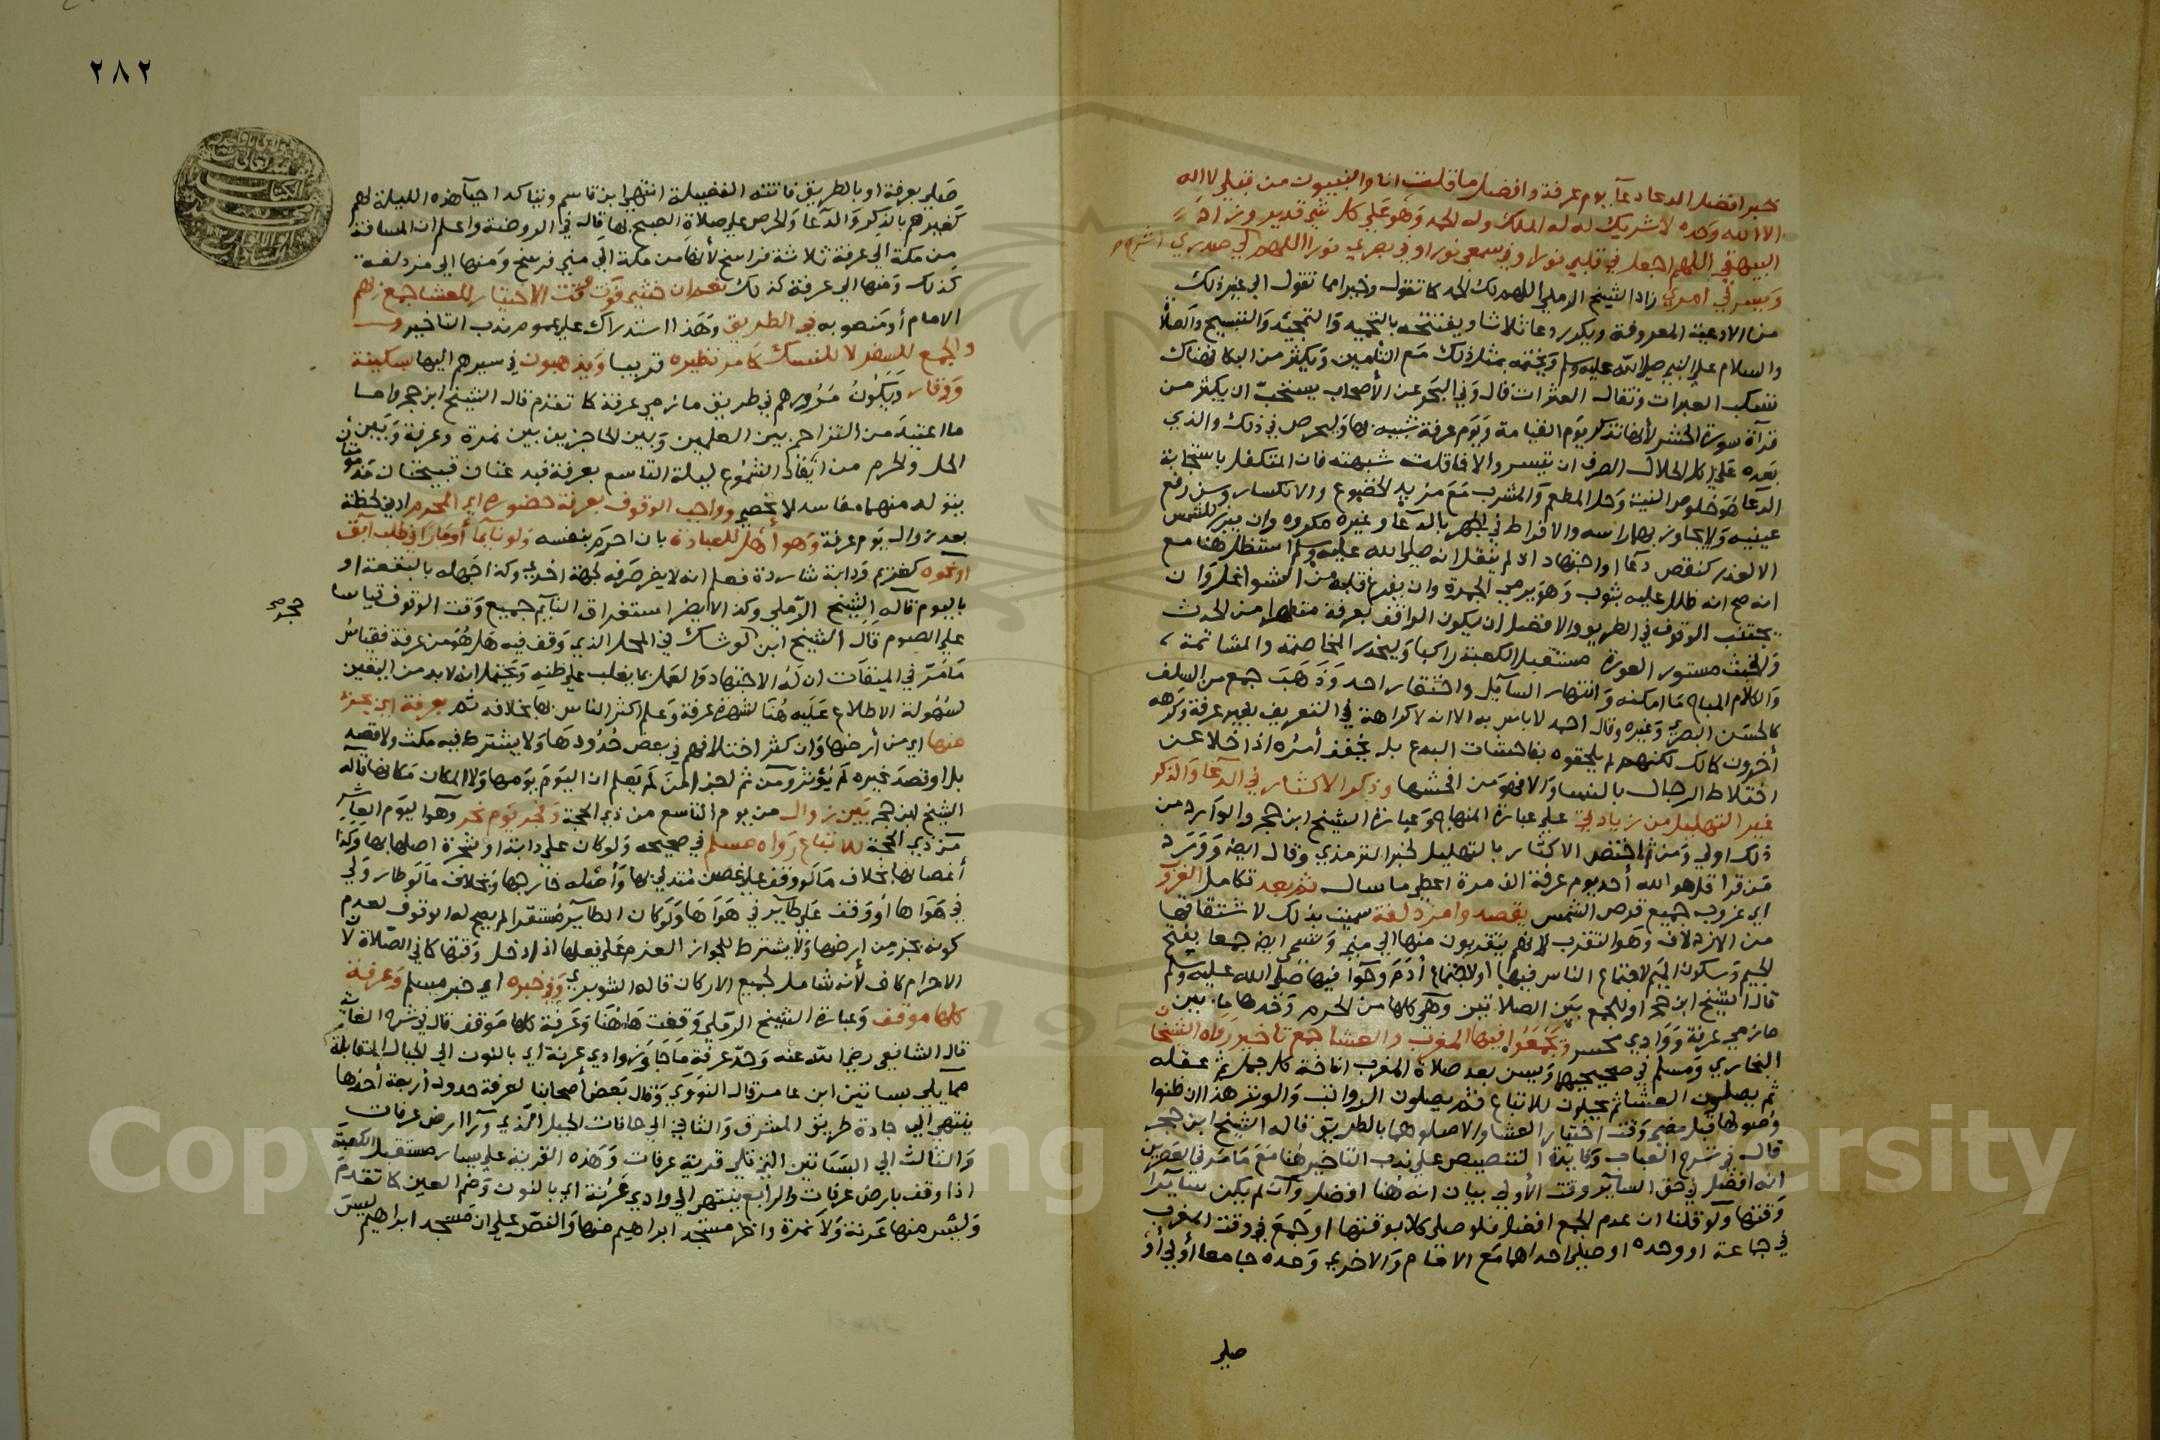 خبر افضل الدعا دعآ يوم عرفة وافضل ما قلت انا والنبيون من قبلي لا اله
الا الله وحده لا شريك له له الملك وله الحمد وهو على كل شي قدير وزاد
البيهقي اللهم اجعل في قلبي نورا وفي سمعي نورا وفي بصري نورا اللهم اشرح لي صدري
ويسر لي امري زاد الشيخ الرملي اللهم لك الحمد كما تقول وخيرا مما نقول الى غير ذلك
من الادعية المعروفة ويكرر دعا ثلاثا ويفتتحه بالتحميد والتمجيد والتسبيح والصلاة
والسلام على النبي صلى الله عليه وسلم ويختمه بمثل ذلك مع التامين ويكثر من البكا فهناك
تسكب العبرات وتقال العثرات قال وفي البحر عن الأصحاب يستحب ان يكثر من
قرآة سورة الحشر لأنها تذكر يوم القيامة ويوم عرفة شبيه بها وليحرص في ذلك والذي
بعده على اكل الحلال الصرف ان تيسر والا فما قلت شبهته فان المتكفل باستجابة
الدعا هو خلوص النية وحل المطعم والمشرب مع مزيد الخضوع والانكسار وسن رفع
يديه ولا يجاوز بهما راسه والافراط في الجهر بالدعا وغيره مكروه وان يبرز للشمس
الا لعذر كنقص دعآ او اجتهاد اذ لم ينقل انه صلى الله عليه وسلم استظل هنا مع
انه صح انه ظلل عليه بثوب وهو يرمي الجمرة وان يفرغ قلبه من الشواغل وان
يجتنب الوقوف في الطريق والافضل ان يكون الواقف بعرفة متطهرا من الحدث
والخبث مستور العورة مستقبل الكعبة راكبا ويحذر المخاصمة والمشاتمة
والكلام المباح ما امكنه وانتهار السآيل واحتقار احد وذهب جمع من السلف
كالحسن البصري وغيره وقال احمد لا باس به الا انه لا كراهة في التعريف بغير عرفة وكرهه
أخرون كمالك لكنهم لم يلحقوه بفاحشات البدع بل يخفف أمره اذا خلا عن
اختلاط الرجال بالنسا والا فهو من افحشها وذكر الاكثار في الدعا والذكر
غير التهليل من زيادتي على عبارة المنهاج وعبارة الشيخ ابن حجر والوارد من
ذلك اولى ومن ثم اختص الاكثار بالتهليل لخبر الترمذي وقال ايضا وورد
من قرا قل هو الله أحد يوم عرفة الف مرة اعطي ما سال ثم بعد تكامل الغروب
اي غروب جميع قرص الشمس يقصدوا مزدلفة سميت بذلك لاشتقاقها
من الازدلاف وهو التقرب لانهم يتقربون منها الى منى وتسمى ايضا جمعا بفتح
الجيم وسكون الميم لاجتماع الناس فيها او لاجتماع أدم وحوا فيها صلى الله عليه وسلم
قال الشيخ ابن حجر او للجمع بين الصلاتين وهي كلها من الحرم وحدها ما بين
مازمي عرفة ووادي محسر ويجمعوا فيها المغرب والعشا جمع تاخير رواه الشيخان
البخاري ومسلم في صحيحيهما ويسن بعد صلاة المغرب اناخة كل جمله ثم عقله
ثم يصلون العشا ثم يحلون للاتباع ثم يصلون الرواتب والوتر هذا ان ظنوا
وصولها قبل مضي وقت اختيار العشا والا صلوهما بالطريق قاله الشيخ ابن حجر
قال في شرح العباب وفايدة التنصيص على ندب التاخير هنا مع ما مر في القصر من
انه افضل في حق السآير وقت الأولى بيان انه هنا افضل وان لم يكن سآيرا
وقتها ولو قلنا ان عدم الجمع افضل فلو صلى كلا بوقتها او جمع في وقت المغرب
في جماعة او وحده او صلى احداهما مع الامام والاخرى وحده جامعا أولى أو
صلى
٢٨٢
صلى بعرفة او بالطريق فاتته الفضيلة انتهى ابن قاسم ويتاكد احيآ هذه الليلة لهم
كغيرهم بالذكر والدعا والحرص على صلاة الصبح بها قاله في الروضة واعلم ان المسافة
من مكة الى عرفة ثلاثة فراسخ لأنها من مكة الى منى فرسخ ومنها الى مزدلفة
كذلك ومنها الى عرفة كذلك نعم ان خشي فوت وقت الاختيار للعشا جمع بهم
الامام أو منصوبه في الطريق وهذا استدراك على عموم ندب التاخير
والجمع للسفر لا للنسك كما مر نظيره قريبا ويذهبون في سيرهم اليها بسكينة
ووقار ويكون مرورهم في طريق مازمي عرفة كما تقدم قال الشيخ ابن حجر واما
ما اعتيد من التزاحم بين العلمين وبين الحاجزين بين نمرة وعرفة وبين
الحل والحرم من ايقاد الشموع ليلة التاسع بعرفة فبدعتان قبيحتان
يتولد منهما مفاسد لا تحصى وواجب الوقوف بعرفة حضوره اي المحرم ادنى لحظة
بعد زوال يوم عرفة وهو أهل للعبادة بان احرم بنفسه ولو نآيما أو مارا في طلب آبق
او نحوه كغريم ودابة شاردة فعلم انه لا يضر صرفه لجهة اخرى وكذا جهله بالبقعة او
باليوم قاله الشيخ الرملي وكذا لا يضر استغراق النآيم جميع وقت الوقوف قياسا
على الصوم قال الشيخ ابن حجر لو شك في المحل الذي وقف فيه هل هو من عرفة فقياس
ما مر في الميقات ان له الاجتهاد والعمل بما يغلب على ظنه ويحتمل ان لا بد من اليقين
لسهولة الاطلاع عليه هنا لشهرة عرفة وعلم اكثر الناس بها بخلافه ثم بعرفة اي بجزء
منها اي من أرضها وان كثر اختلافهم في بعض حدودها ولا يشترط فيه مكث ولا قصد
بل لو قصد غيره لم يؤثر ومن ثم لجزا لمن لم يعلم ان اليوم يومها ولا المكان مكانها قاله
الشيخ ابن حجر بين زوال من يوم التاسع من ذي الحجة وفجر يوم نحر وهو اليوم العاشر
من ذي الحجة للاتباع رواه مسلم في صحيحه ولو كان على دابة او شجرة اصلها بها وكذا
أغصانها بخلاف ما لو وقف على غصن متدلي بها وأصله خارجها وبخلاف ما لو طار ولي
في هوآها أو وقف على طآير في هوآها ولو كان الطآير مستقرا لم يصح له الوقوف لعدم
كونه بجزء من ارضها ولا يشترط للجواز العزم على فعلها اذا دخل وقتها كما في الصلاة لأن
الاحرام كاف لأنه شامل لجميع الاركان قاله الشوبري وفي خبره اي خبر مسلم وعرفة
كلها موقف وعبارة الشيخ الرملي وقفت هاهنا وعرفة كلها موقف قال في شرح العباب
قال الشافعي رضي الله عنه وحد عرفة ما جاوز وادي عرنة اي بالنون الى الجبال المقابلة
مما يلي بساتين ابن عامر قال النووي وقال بعض أصحابنا لعرفة حدود أربعة أحدها
ينتهي الى جادة طريق المشرق والثاني الى حافات الجبل الذي ورآ ارض عرفات
والثالث الى البساتين التي تلي قرية عرفات وهذه القرية على يسار مستقبل الكعبة
اذا وقف بارض عرفات والرابع ينتهي الى وادي عرنة اي بالنون وضم العين كما تقدم
وليس منها عرنة ولا نمرة وآخر مسجد ابراهيم منها والنص على ان مسجد ابراهيم ليس